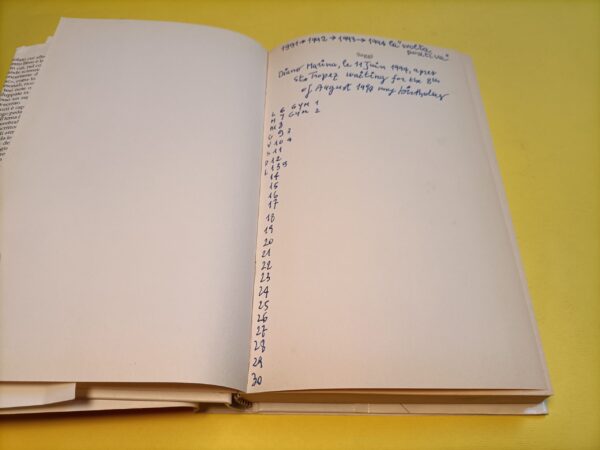 1991→1992→1993→1994 la "volta
positiva"
Saggi
Diano Marina, le 11 Juin 1994, apres
sto Tropez waiting for the 8th
of August 1994 my birthday
L 6 GYM 1
M 7 GYM 2
M 8
G 9 3
V 10 4
S 11
D 12
L 13 5
14
15
16
17
18
19
20
21
22
23
24
25
26
27
28
29
30